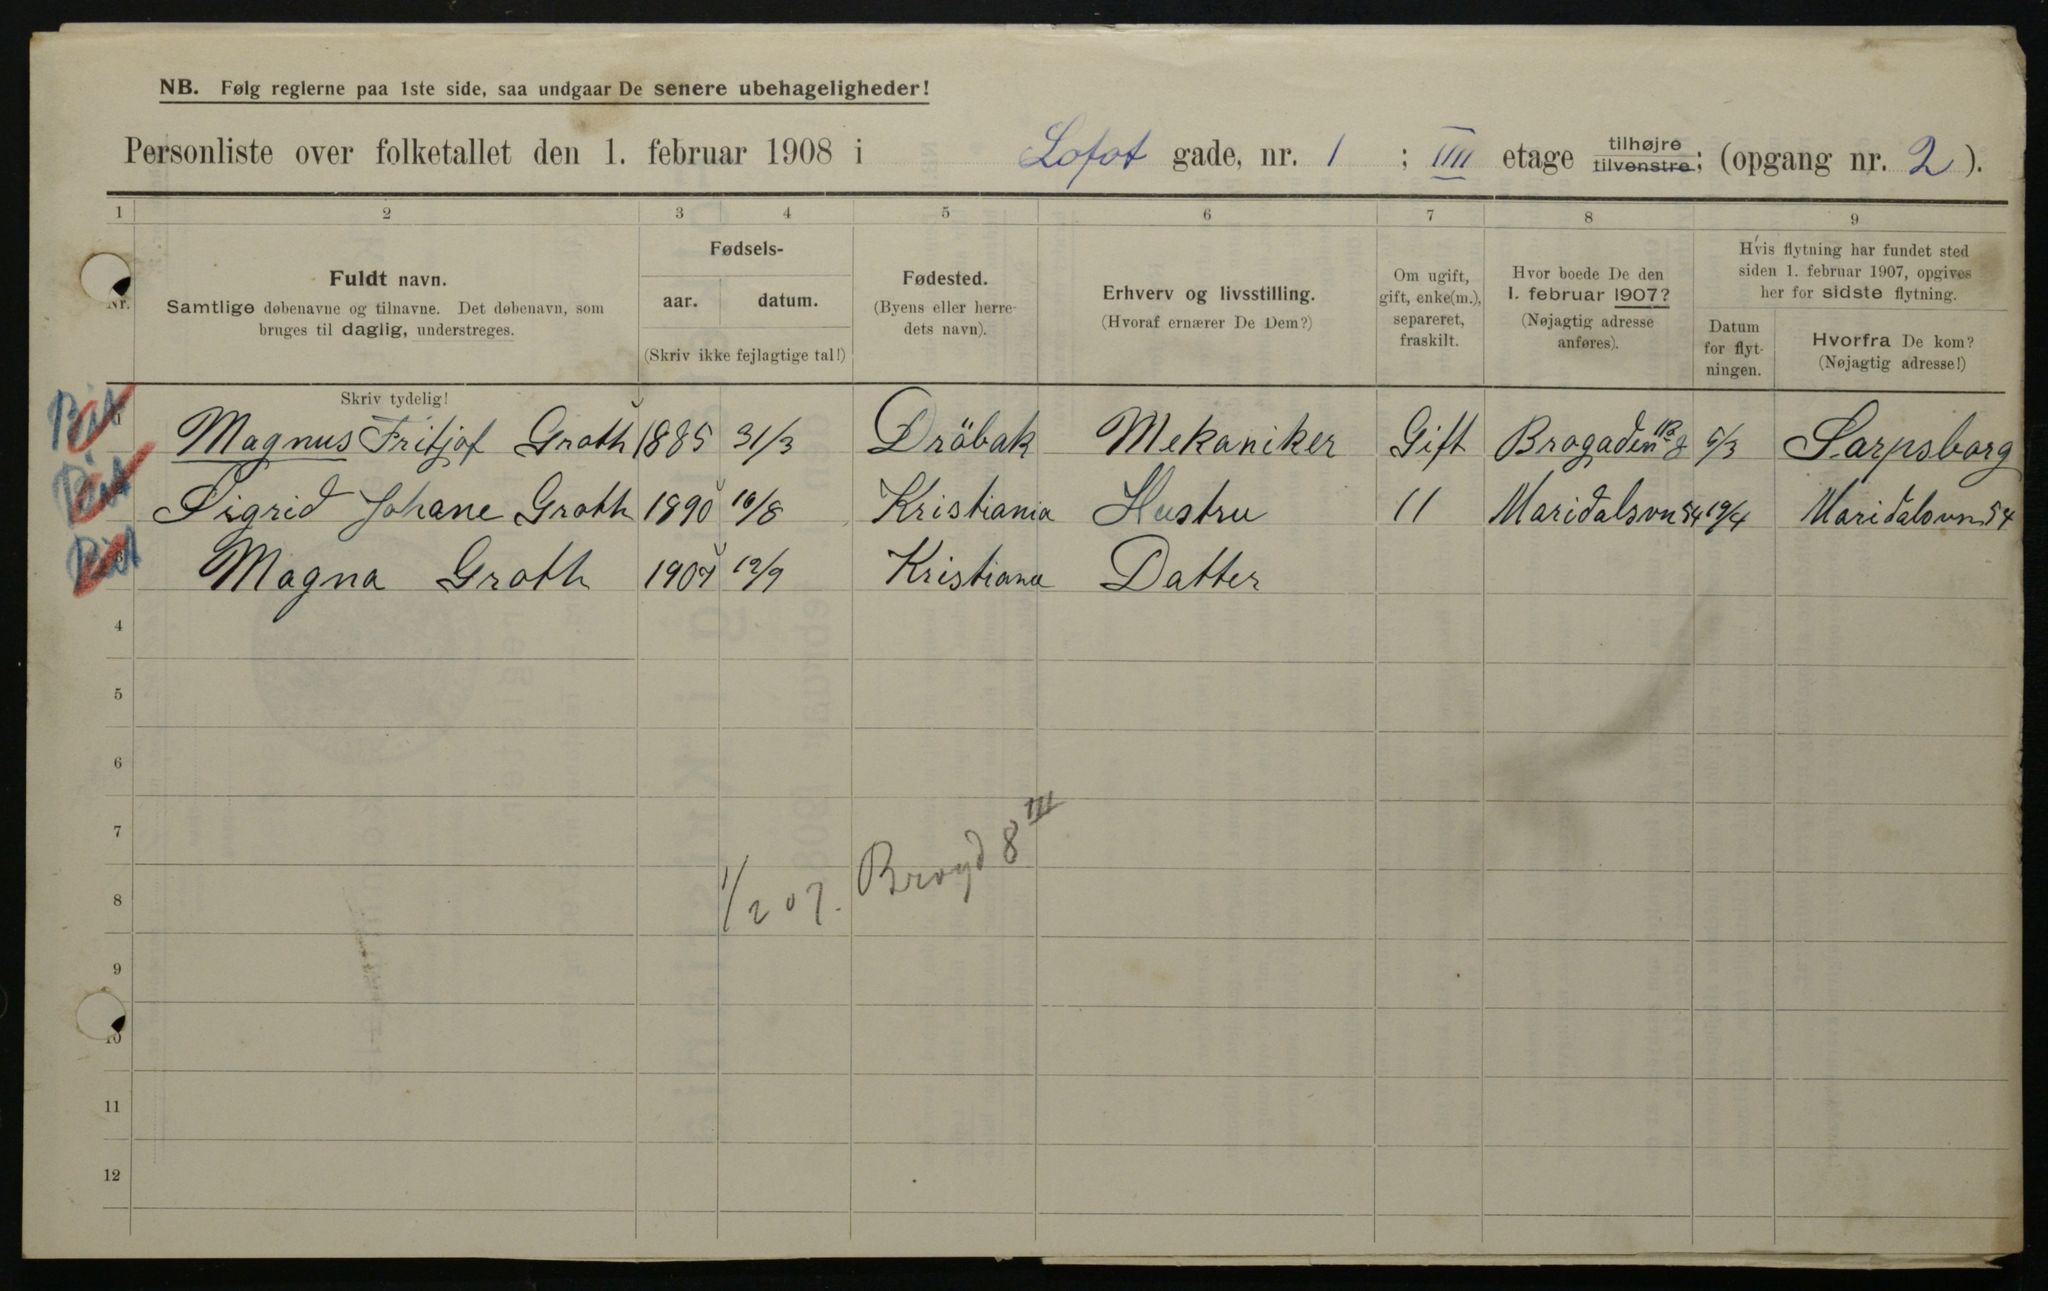 NB. Følg reglerne paa 1ste side, saa undgaar De senere ubehageligheder!
Personliste over folketallet den 1. februar 1908 i Lofot gade, nr. 1 ; IIII etage tilhøjre tilvenstre; (opgang nr. 2).
1 2 3 4 5 6 7 8 9
Nr.
Fuldt navn.
Samtlige døbenavne og tilnavne. Det døbenavn, som
bruges til daglig, understreges.
Fødsels-
aar. datum.
(Skriv ikke fejlagtige tal!)
Fødested.
(Byens eller herre-
dets navn).
Erhverv og livsstilling.
(Hvoraf ernærer De Dem?)
Om ugift,
gift, enke(m.),
separeret,
fraskilt.
Hvor boede De den
1. februar 1907?
(Nøjagtig adresse
anføres).
Hvis flytning har fundet sted
siden 1. februar 1907, opgives
her for sidste flytning.
Datum
for flyt-
ningen.
Hvorfra De kom?
(Nøjagtig adresse!)
Skriv tydelig!
Magnus Fritjof Groth 1885 31/3 Dröbak Mekaniker Gift Brogaden 8 5/3 Sarpsborg
Sigrid Johane Groth 1890 16/8 Kristiania Hustru 11 Maridalsvn 54 19/4 Maridalsvn 54
3 Magna Groth 1907 12/9 Kristiana Datter
4
5
6
7
8
9
10
11
12
1/2 07. Brogd 8 III